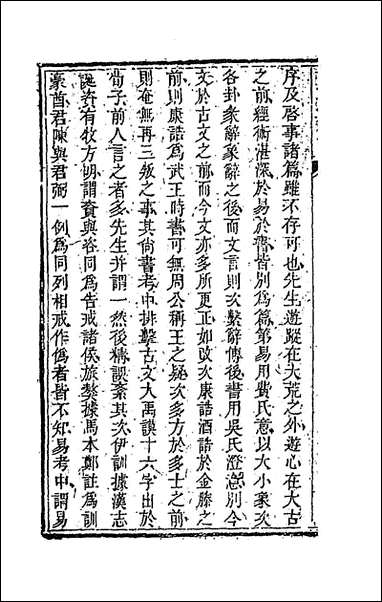 序及啓事諸篇雖不存可也先生遊蹤在大荒之外遊心在大古
之前經術湛深於易於書皆別爲篇第易用費氏意以大小象次
各卦彖辭象辭之後而文言則次繫辭傳後書用吳氏澄意別今
文於古文之前而今文亦多所更正如改次康誥酒誥於金縢之
前則康誥爲武王時書可無周公稱王之疑次多方於多士之前
則奄無再三叛之事其尚書考中排擊古文大禹謨十六字出於
荀子前人言之者多先生并謂一然後構訟紊其次伊訓據漢志
誕資有牧方明謂資與咨同爲告戒諸侯旅獒據馬本鄭註爲訓
豪酋君陳與君弼一例爲同列相戒作僞者皆不知易考中謂易